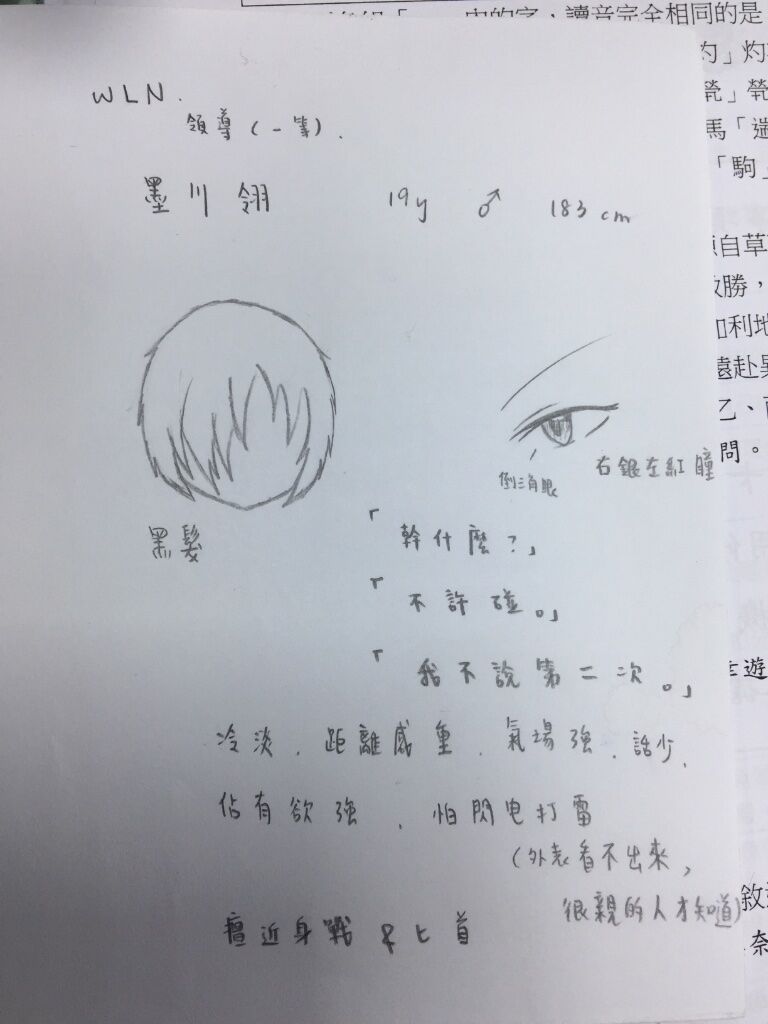 中的字，讀音完全相同的是
WLN.
領導(一等).
墨川翎 19y ♂ 183cm
右銀左紅瞳
倒三角眼
黑髮
「幹什麼?」
「不許碰。」
「我不說第二次。」
冷淡、距離感重、氣場強、話少、
佔有欲強、怕閃电打雷
(外表看不出來,
很親的人才知道)
擅近身戰&匕首
馬「
「駒」
自草
勝，
利地
遠赴
乙、
問。
遊
敘